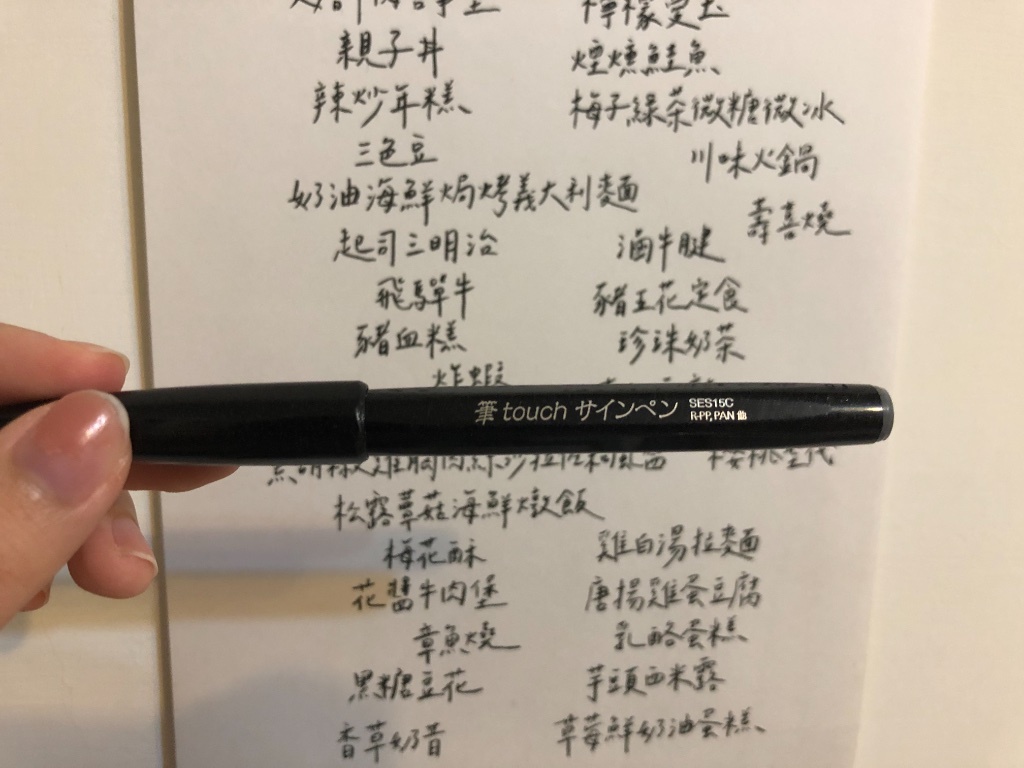 親子丼
煙燻鮭魚
辣炒年糕
梅子綠茶微糖微冰
三色豆
川味火鍋
奶油海鮮焗烤義大利麵
壽喜燒
起司三明治
滷牛腱
飛驒牛
豬五花定食
豬血糕
珍珠奶茶
炸蝦
筆touch サインペン SES15C
R-PP, PAN
松露蕈菇海鮮燉飯
梅花酥
雞白湯拉麵
花醬牛肉堡
唐揚雞蛋豆腐
章魚燒
乳酪蛋糕
黑糖豆花
芋頭西米露
香草奶昔
草莓鮮奶油蛋糕